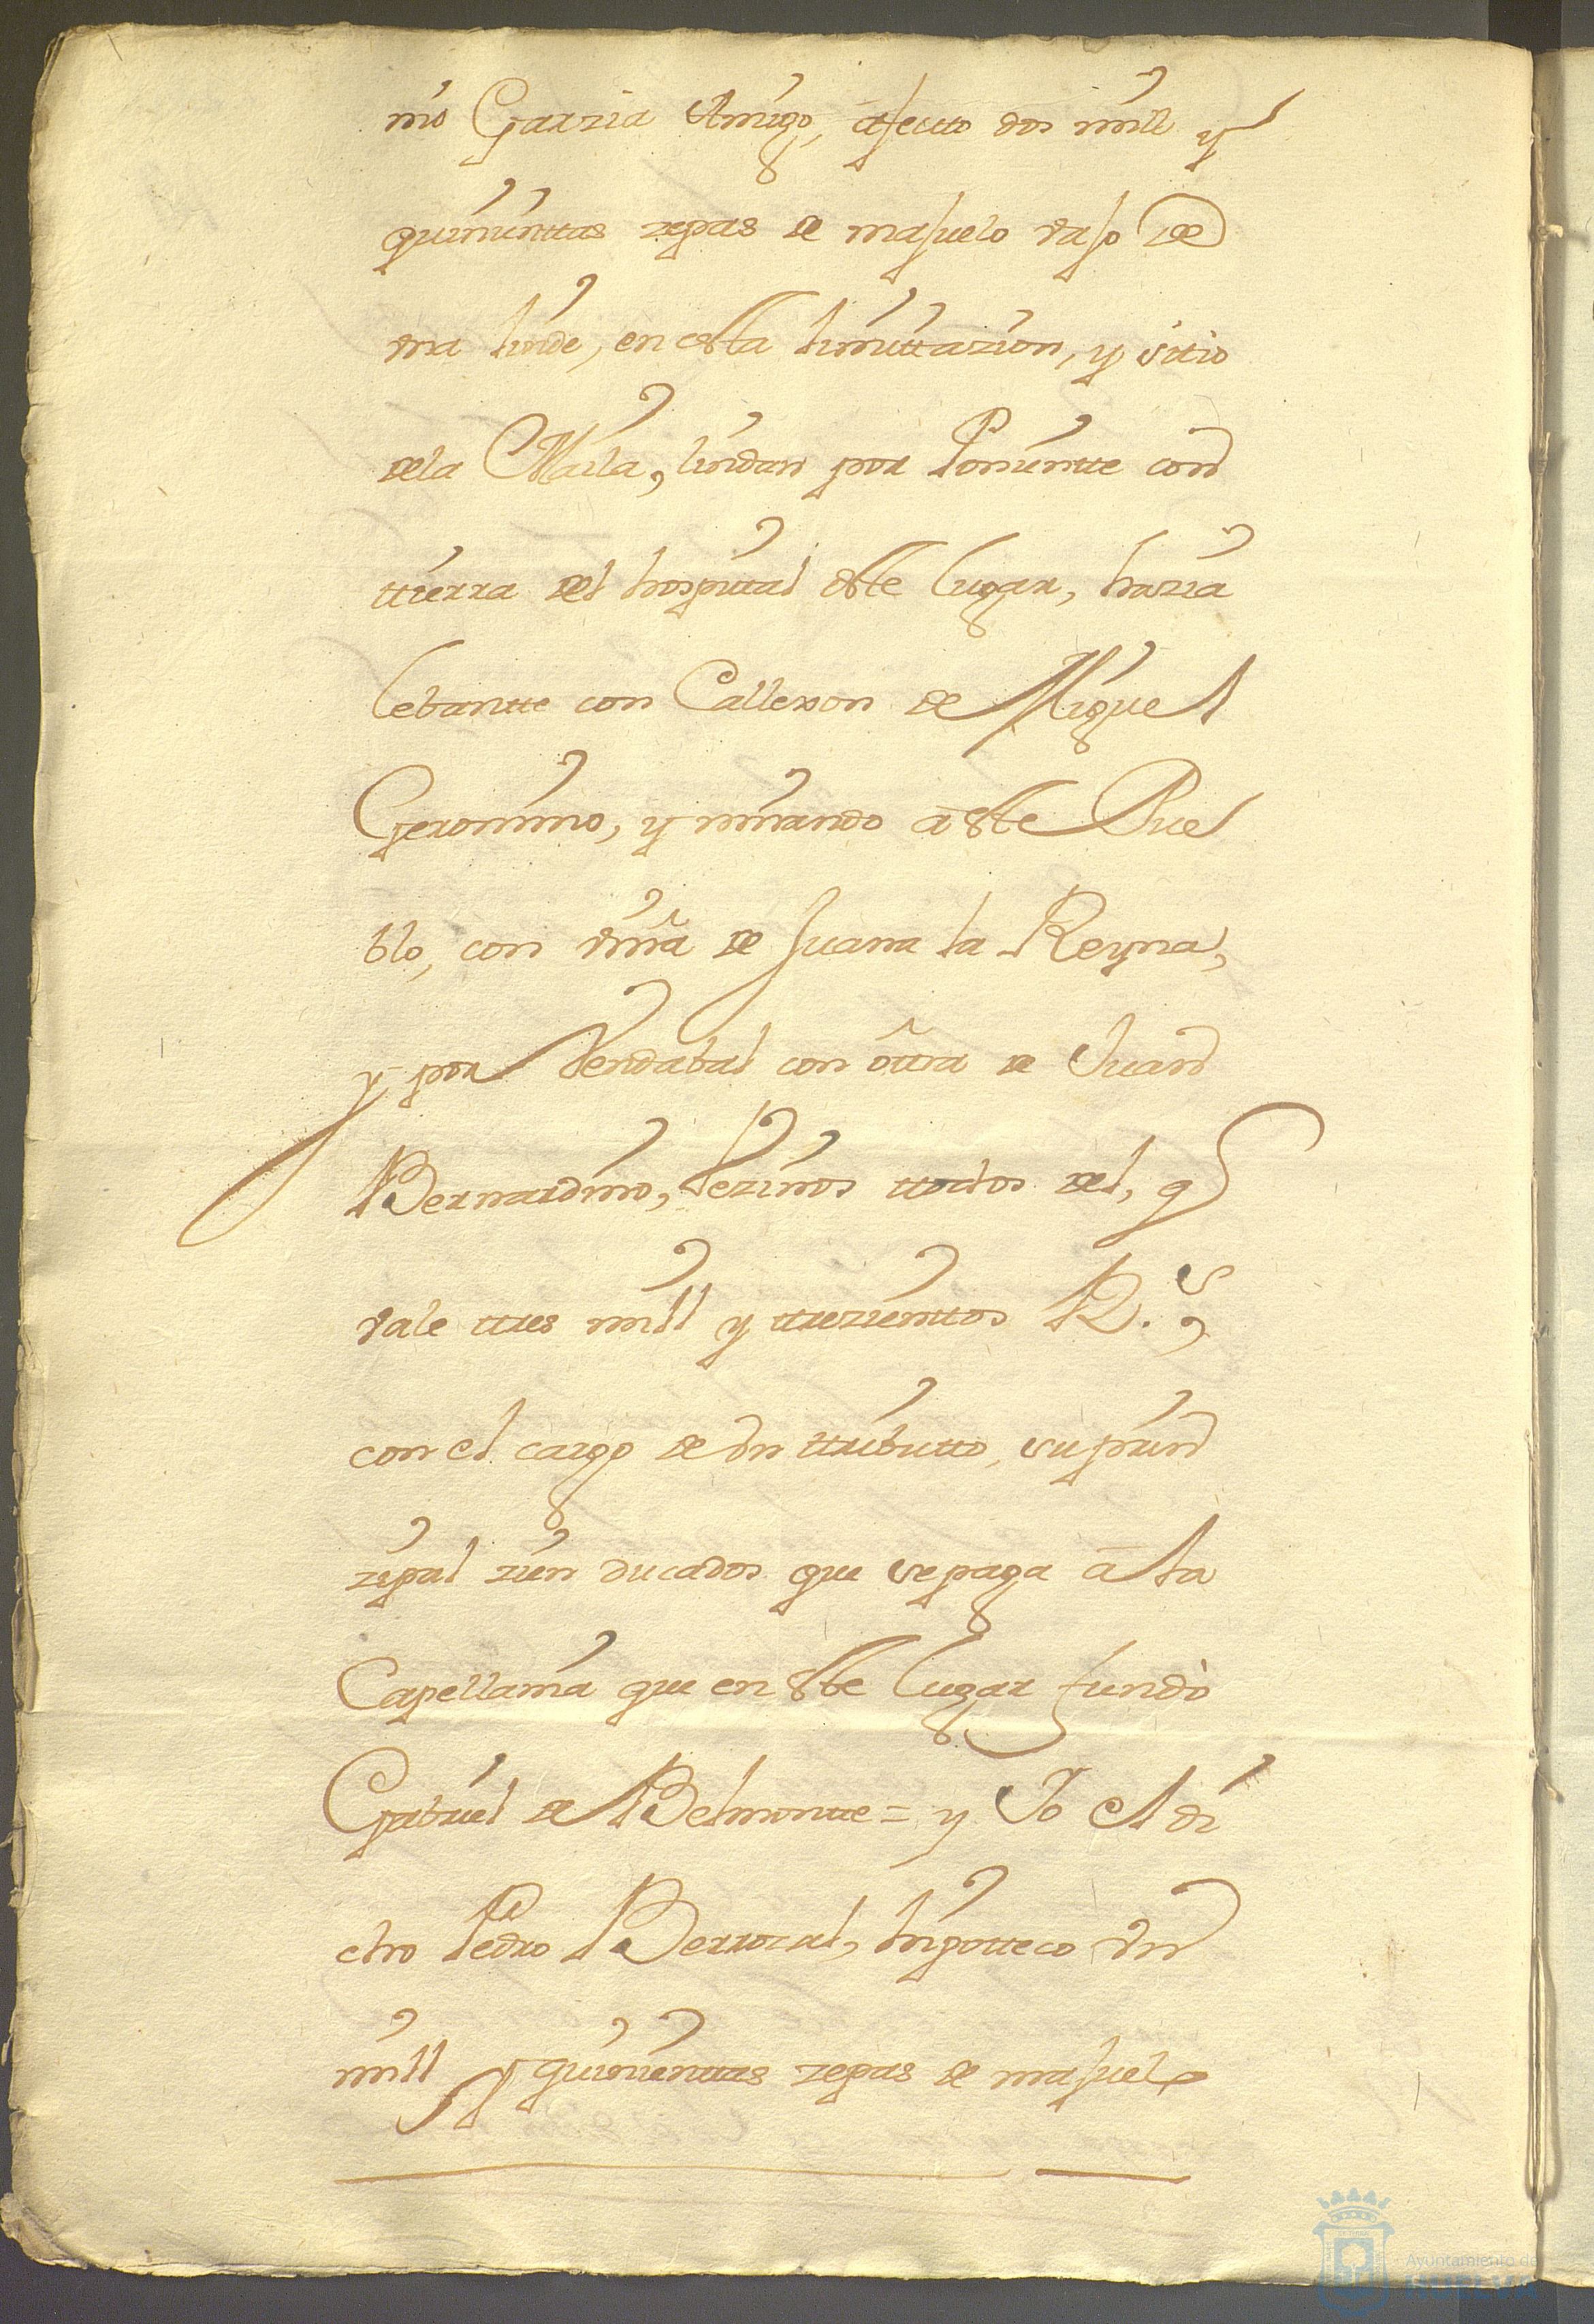 nio Garzia Amigo, afecto dos mill y
quinienttas zepas de majuelo vajo de
vna linde, en estta limittazion, y sitio
dela Maila, lindan por Ponientte con
ttierra del hospittal estte lugar, hazia
lebantte con Callexon de Miguel
Geronimo, y mirando a estte Pue
blo, con viña de Juana la Reyna,
y por Vendabal con ottra de Juan
Bernardino, Vezinos ttodos del, q
vale ttres mill y ttrezienttos R.s
con el cargo de vn ttributto, su prin
zipal zien ducados que se paga a la
Capellania que en estte lugar fundò
Gabriel de Belmontte = y Yo el di
cho Pedro Berrocal, hipotteco vn
mill y quinienttas zepas de majuelo
Ayuntamiento de
HUELVA